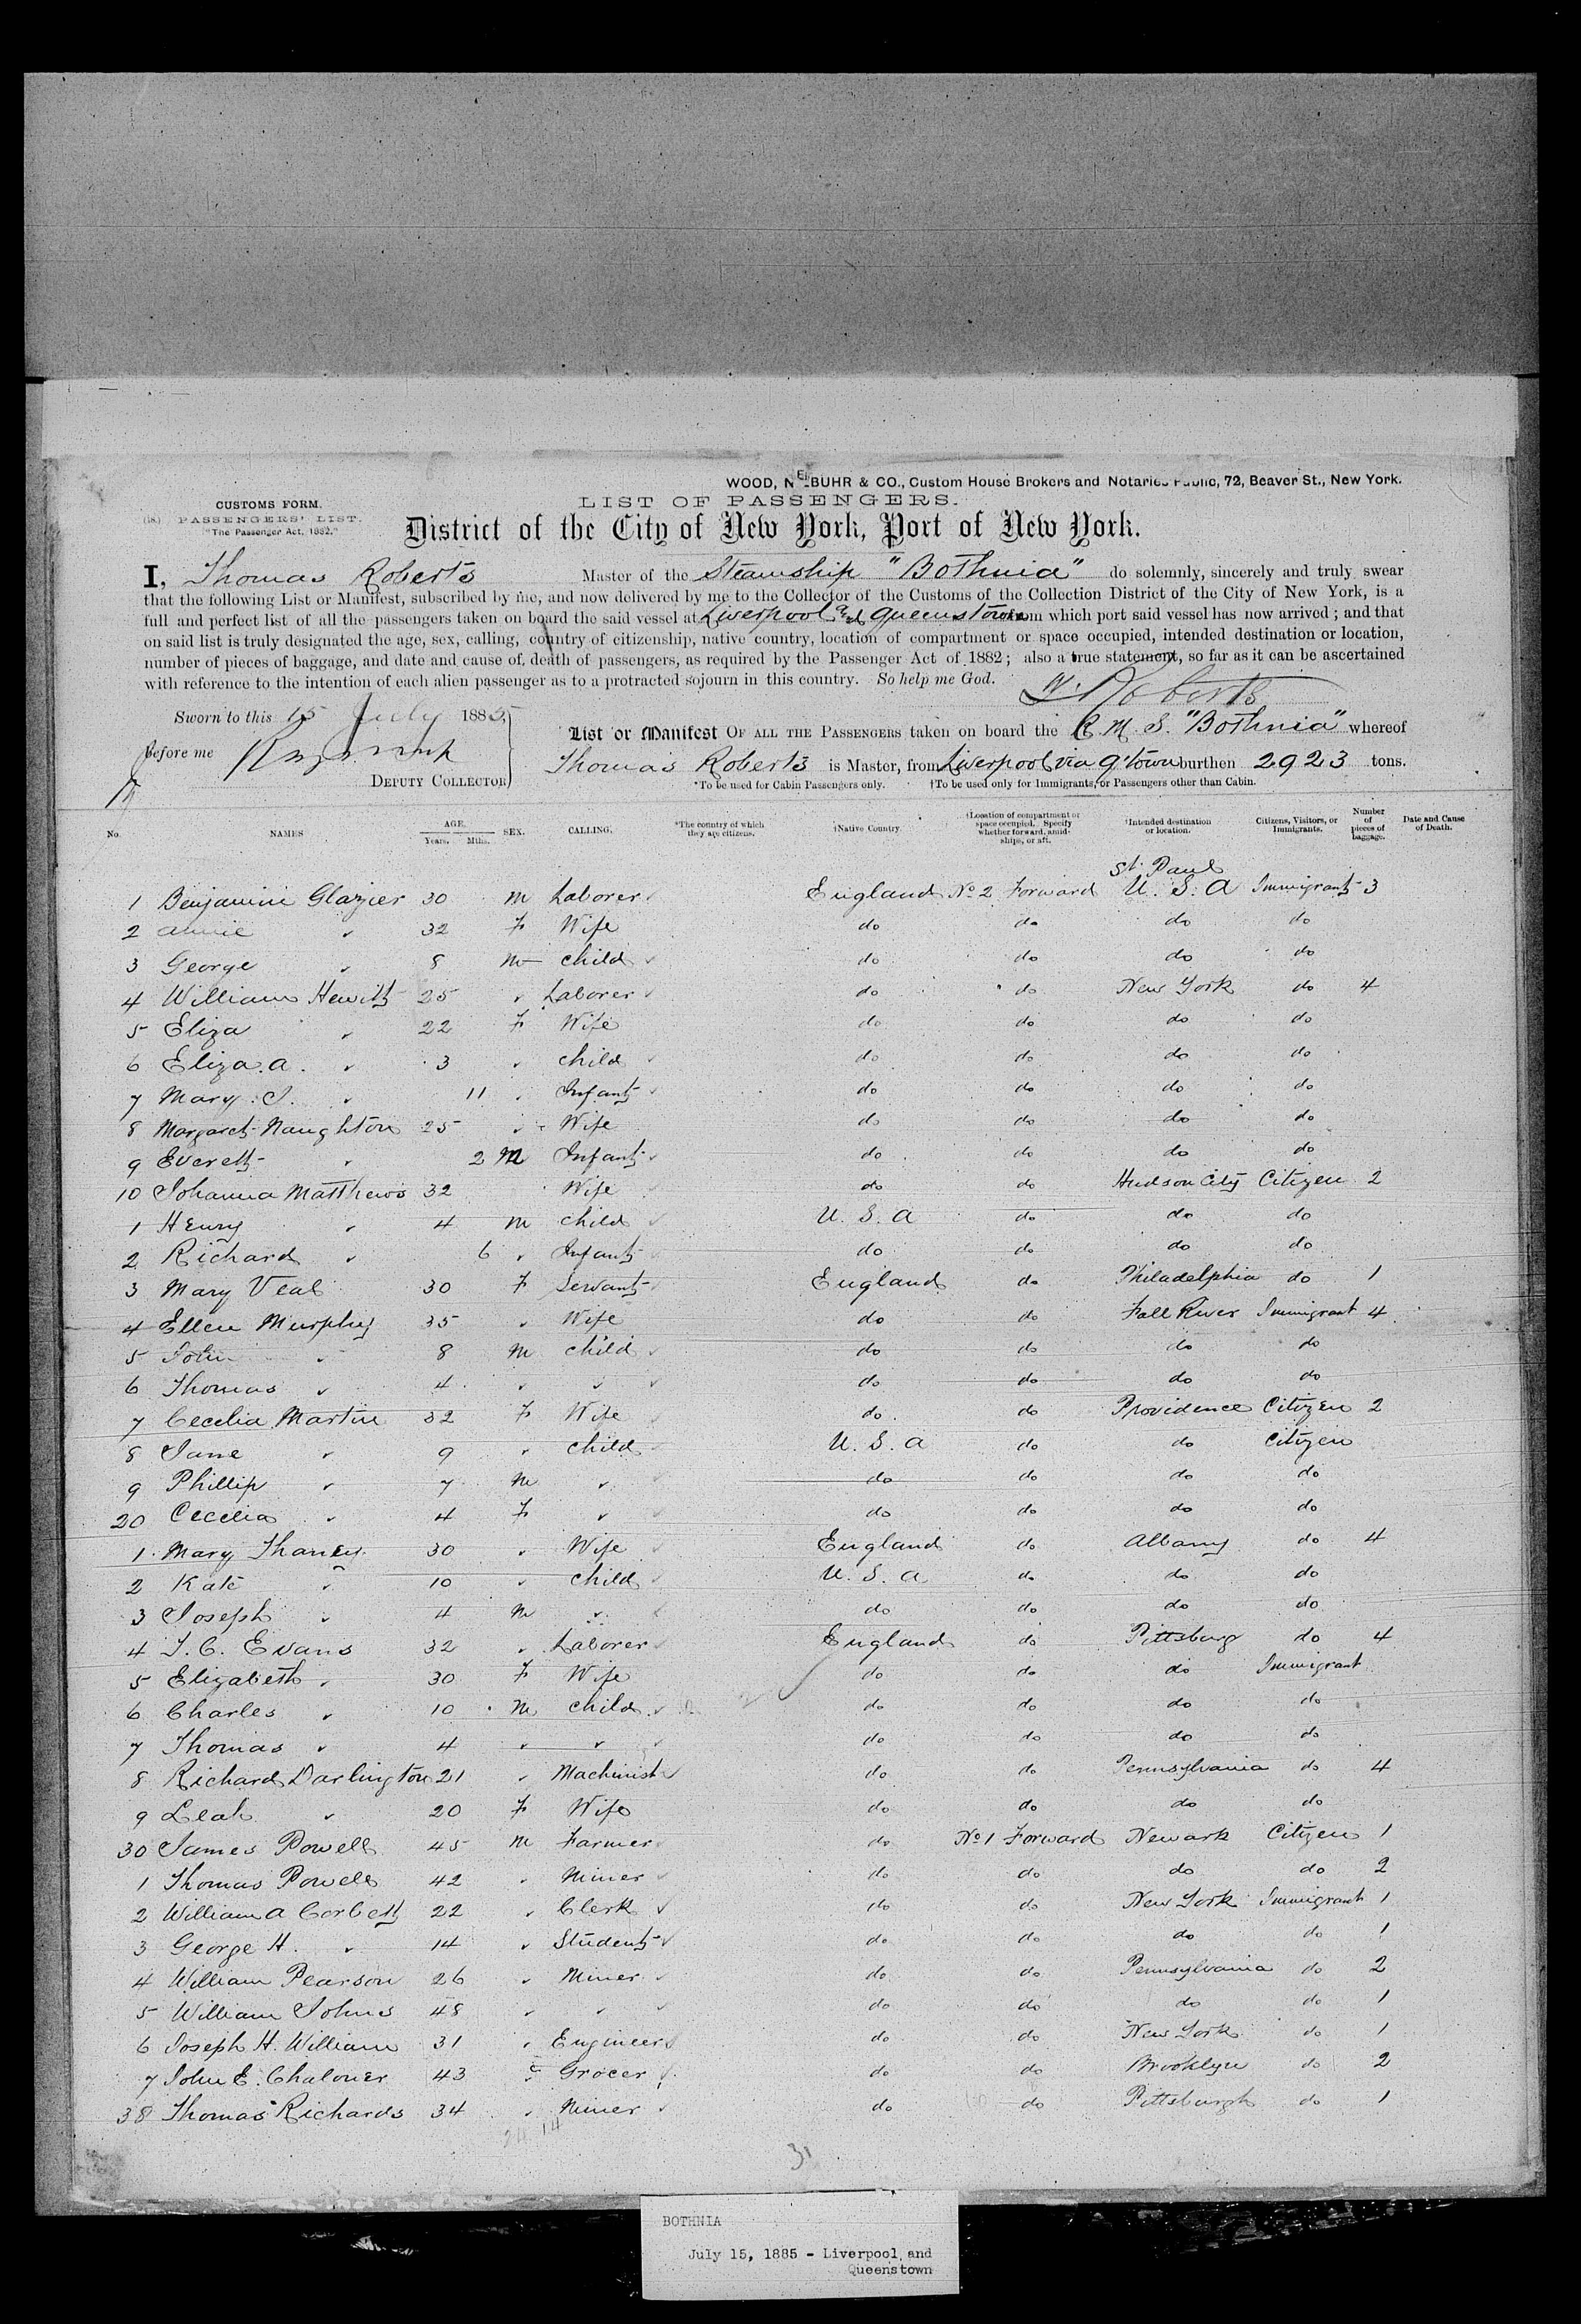 WOOD, NEBUHR & CO., Custom House Brokers and Notaries Public, 72, Beaver St., New York.
CUSTOMS FORM.
LIST OF PASSENGERS.
(18.) PASSENGERS' LIST.
"The Passenger Act, 1882."
District of the City of New York, Port of New York.
I, Thomas Roberts Master of the Steamship "Bothnia" do solemnly, sincerely and truly swear
that the following List or Manifest, subscribed by me, and now delivered by me to the Collector of the Customs of the Collection District of the City of New York, is a
full and perfect list of all the passengers taken on board the said vessel at Liverpool and Queenstown from which port said vessel has now arrived; and that
on said list is truly designated the age, sex, calling, country of citizenship, native country, location of compartment or space occupied, intended destination or location,
number of pieces of baggage, and date and cause of death of passengers, as required by the Passenger Act of 1882; also a true statement, so far as it can be ascertained
with reference to the intention of each alien passenger as to a protracted sojourn in this country. So help me God.
Roberts
Sworn to this 15 July 1885,
List or Manifest OF ALL THE PASSENGERS taken on board the R. M. S. "Bothnia" whereof
Before me
Thomas Roberts is Master, from Liverpool via Q'town burthen 2923 tons.
DEPUTY COLLECTOR
*To be used for Cabin Passengers only. †To be used only for Immigrants, or Passengers other than Cabin.
No. NAMES AGE. Years. Mths. SEX. CALLING. *The country of which they are citizens. †Native Country †Location of compartment or space occupied. Specify whether forward, amidships, or aft. †Intended destination or location. Citizens, Visitors, or Immigrants. Number of pieces of baggage. Date and Cause of Death.
St. Paul
1 Benjamin Glazier 30 M Laborer England No 2 Forward U. S. A Immigrant 3
2 Annie " 32 F Wife do do do do
3 George " 8 M child do do do do
4 William Hewitt 25 " Laborer do do New York do 4
5 Eliza " 22 F Wife do do do do
6 Eliza. A. " 3 " child do do do do
7 Mary. J. " 11 " Infant do do do do
8 Margaret Naughton 25 " Wife do do do do
9 Everett " 2 M Infant do do do do
10 Johanna Matthews 32 Wife do do Hudson City Citizen 2
1 Henry " 4 M child U. S. A do do do
2 Richard " 6 " Infant do do do do
3 Mary Veal 30 F Servant England do Philadelphia do 1
4 Ellen Murphy 35 " Wife do do Fall River Immigrant 4
5 John " 8 M child do do do do
6 Thomas " 4 " " do do do do
7 Cecelia Martin 32 F Wife do do Providence Citizen 2
8 Jane " 9 " child U. S. A do do Citizen
9 Phillip " 7 M " do do do do
20 Cecelia " 4 F " do do do do
1 Mary Thaney 30 " Wife England do Albany do 4
2 Kate " 10 " child U. S. A do do do
3 Joseph " 4 M " do do do do
4 J. C. Evans 32 " Laborer England do Pittsburg do 4
5 Elizabeth " 30 F Wife do do do Immigrant
6 Charles " 10 M child do do do do
7 Thomas " 4 " " do do do do
8 Richard Darlington 21 " Machinist do do Pennsylvania do 4
9 Leah " 20 F Wife do do do do
30 James Powell 45 M Farmer do No 1 Forward Newark Citizen 1
1 Thomas Powell 42 " Miner do do do do 2
2 William A Corbett 22 " Clerk do do New York Immigrant 1
3 George H. " 14 " Student do do do do 1
4 William Pearson 26 " Miner do do Pennsylvania do 2
5 William Johns 48 " " do do do do 1
6 Joseph H. William 31 " Engineer do do New York do 1
7 John E. Chaloner 43 " Grocer do do Brooklyn do 2
38 Thomas Richards 34 " Miner do do Pittsburgh do 1
24 14
31
BOTHNIA
July 15, 1885 - Liverpool and
Queenstown